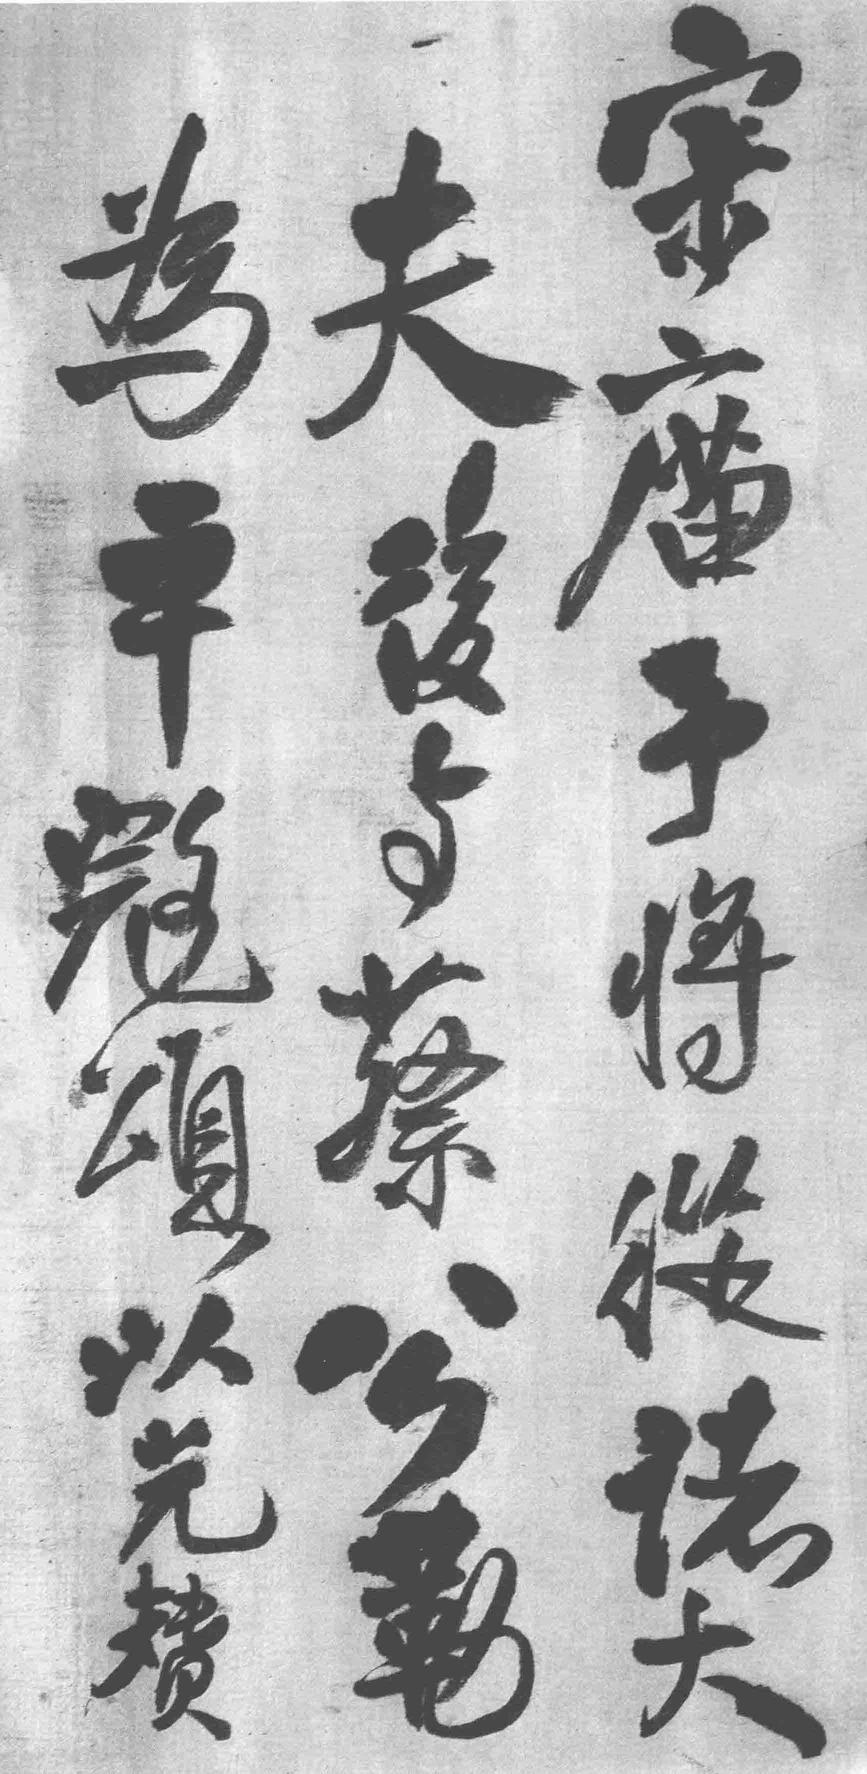 宋廣予將從諸大
夫後与蔡公勒
為平寇頌以光贊